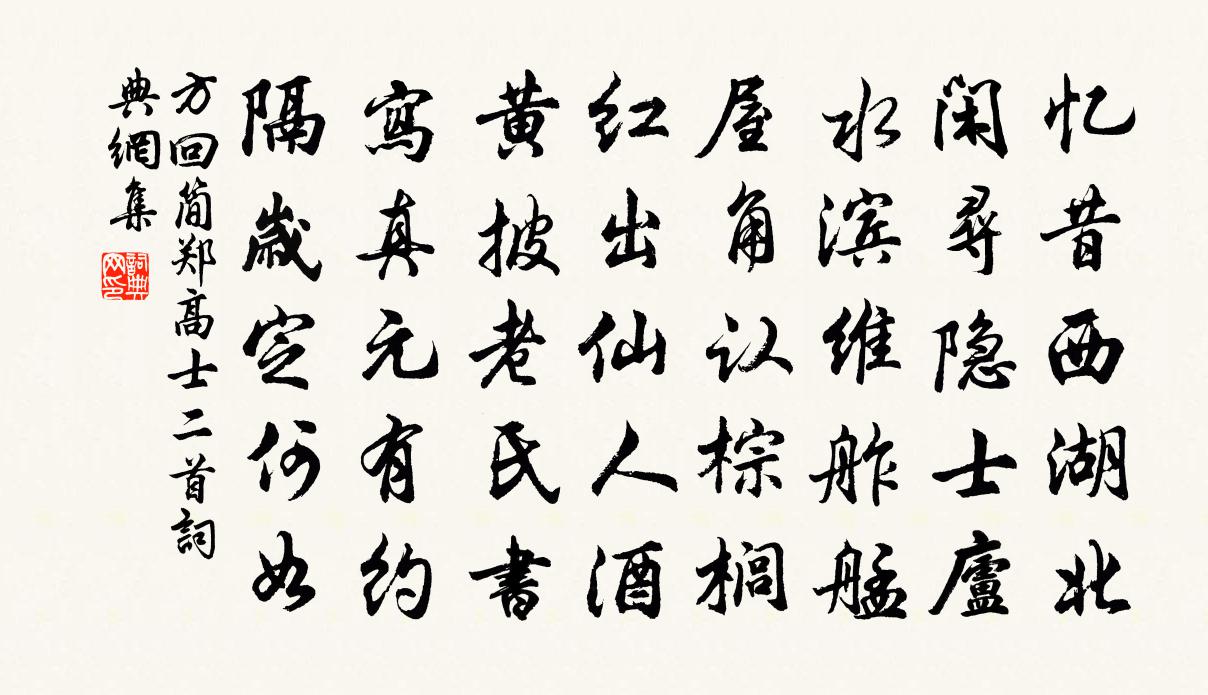 忆昔西湖北
闲寻隐士廬
水滨维舴艋
屋角认棕榈
红出仙人酒
黄披老氏書
寫真元有约
隔歲定何如
方回简郑高士二首詞
典網集
詞典
网印